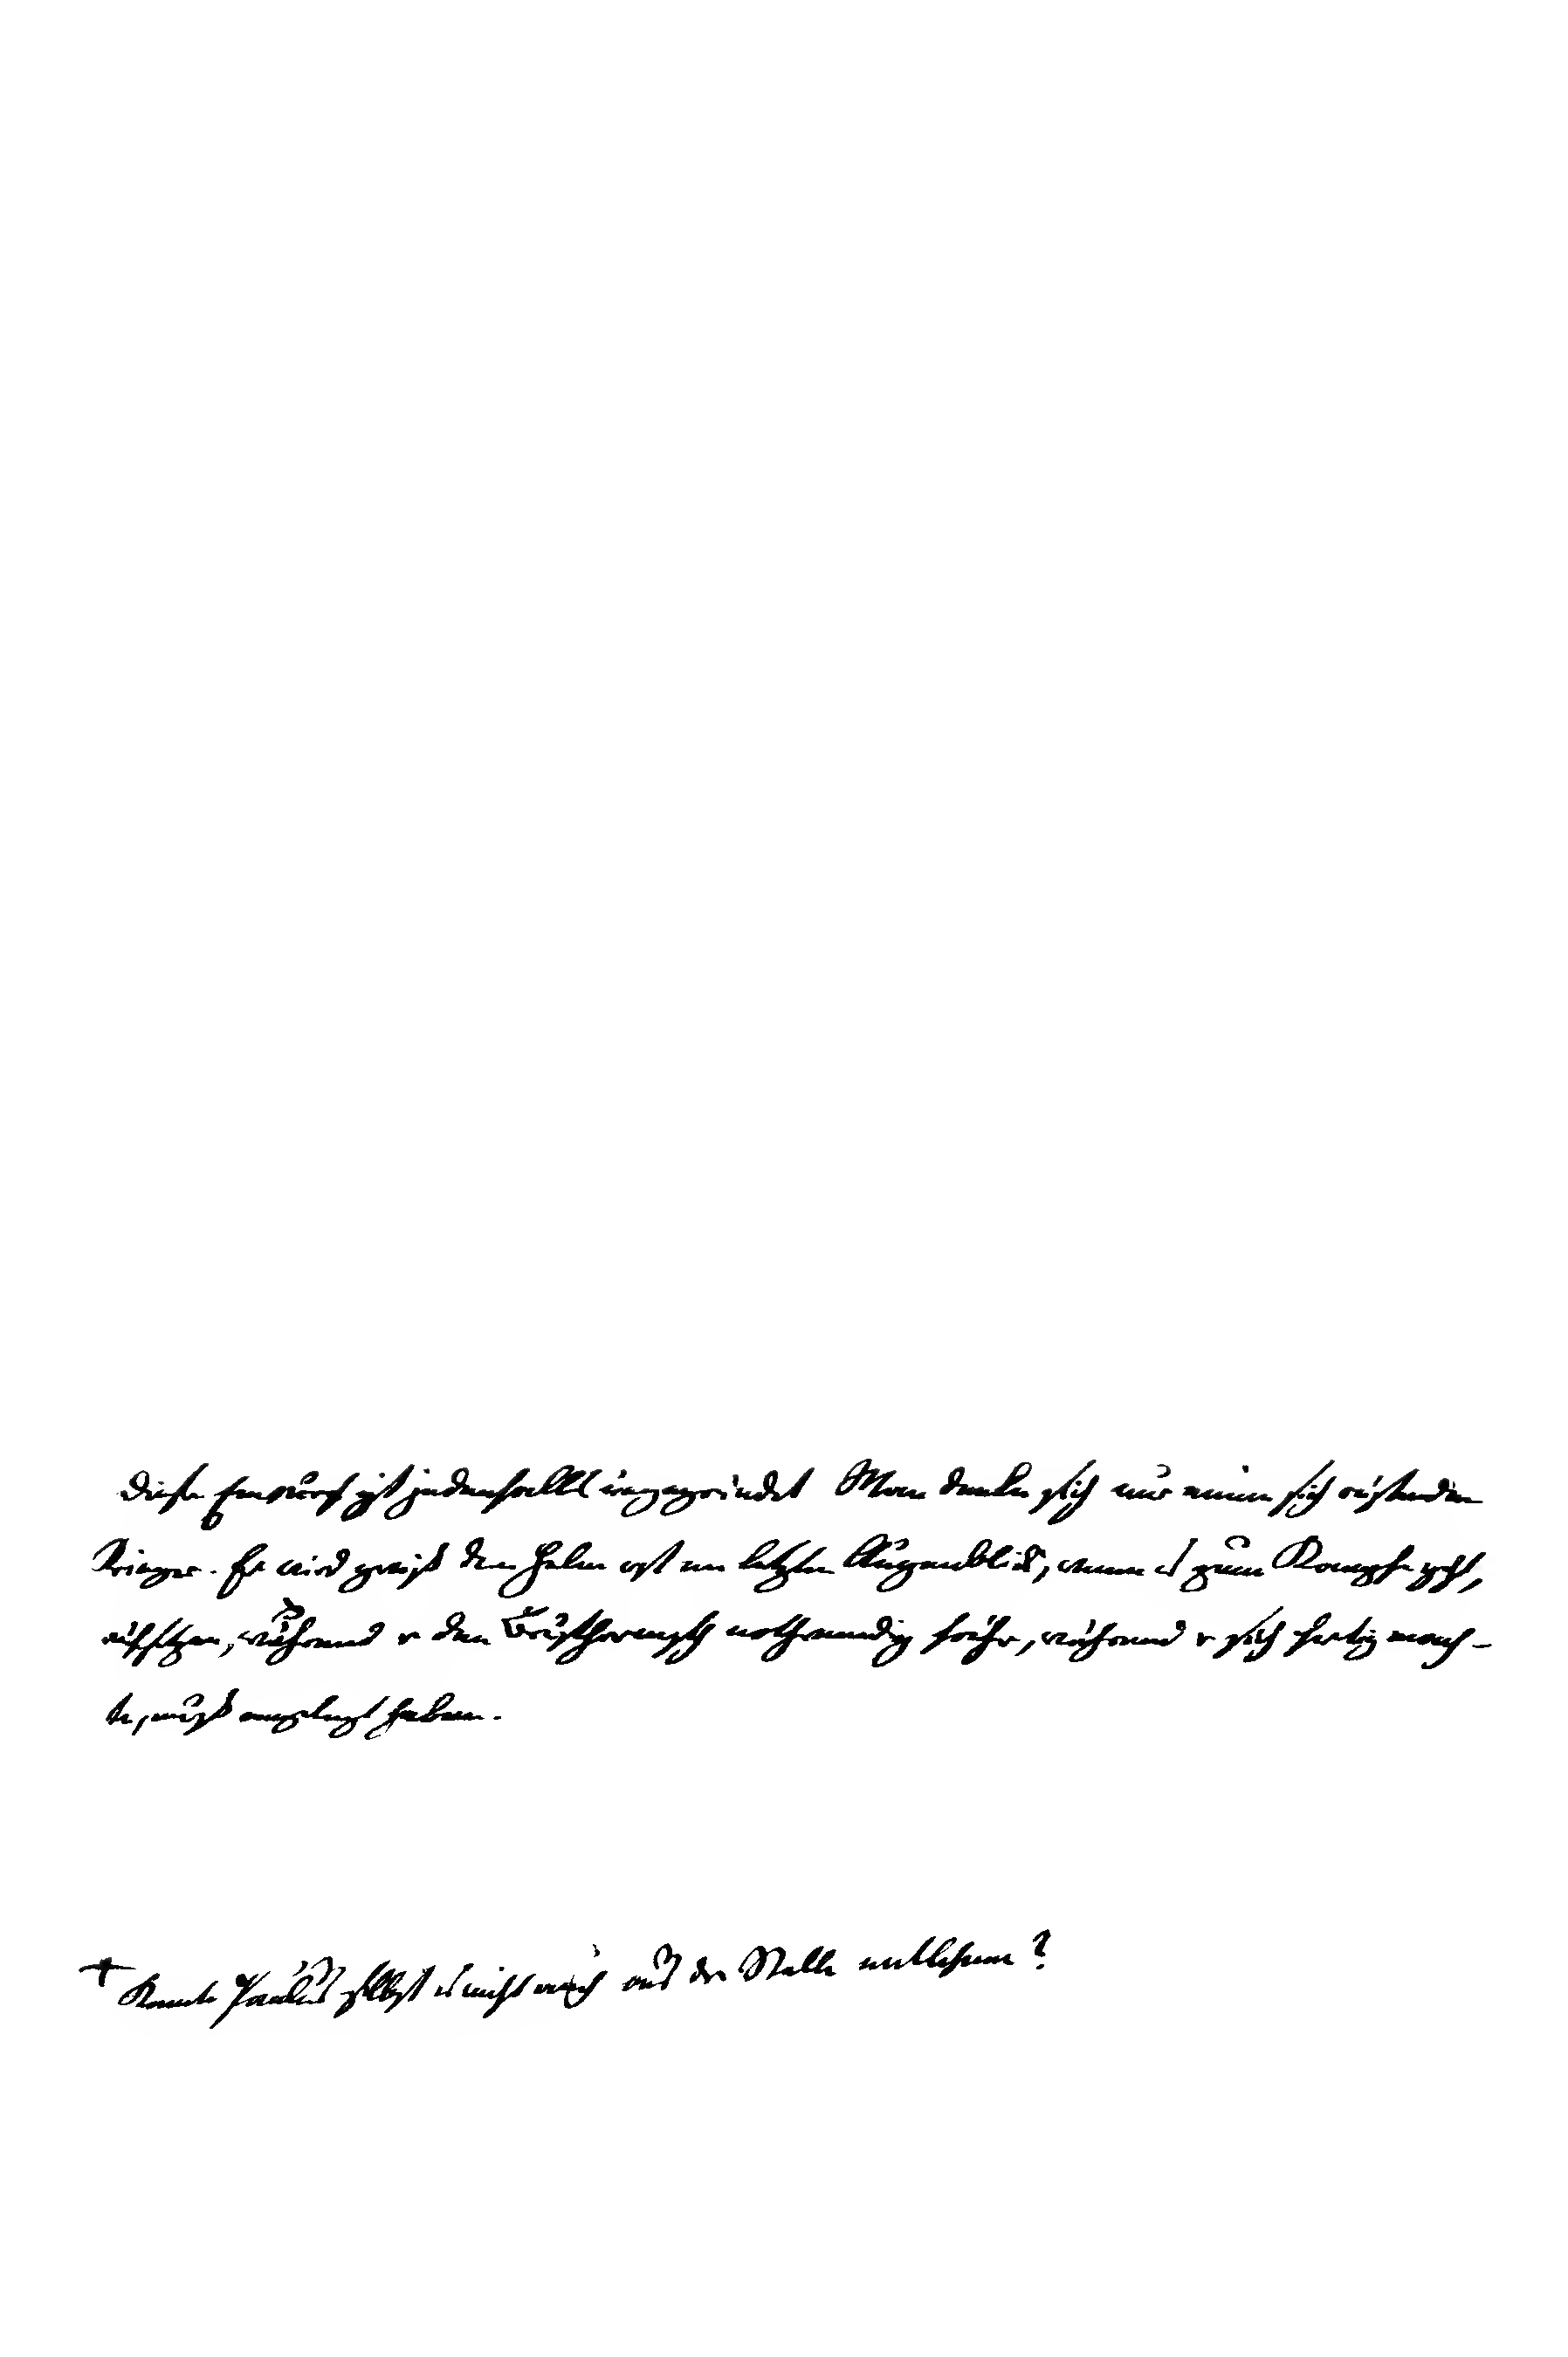 Dieser Einwurf ist jedenfalls ungegründet Man denke sich nur einen sich rüstenden
Krieger. Er wird gewiß den Helm erst im letzten Augenblick, wenn es zum Kampfe geht,
aufsetzen, während er den Brustharnisch nothwendig früher, während er sich fertig mach-
te, muß angelegt haben.
+ Konnte Paulus selbst es nicht auch aus der Stelle entlehnen?